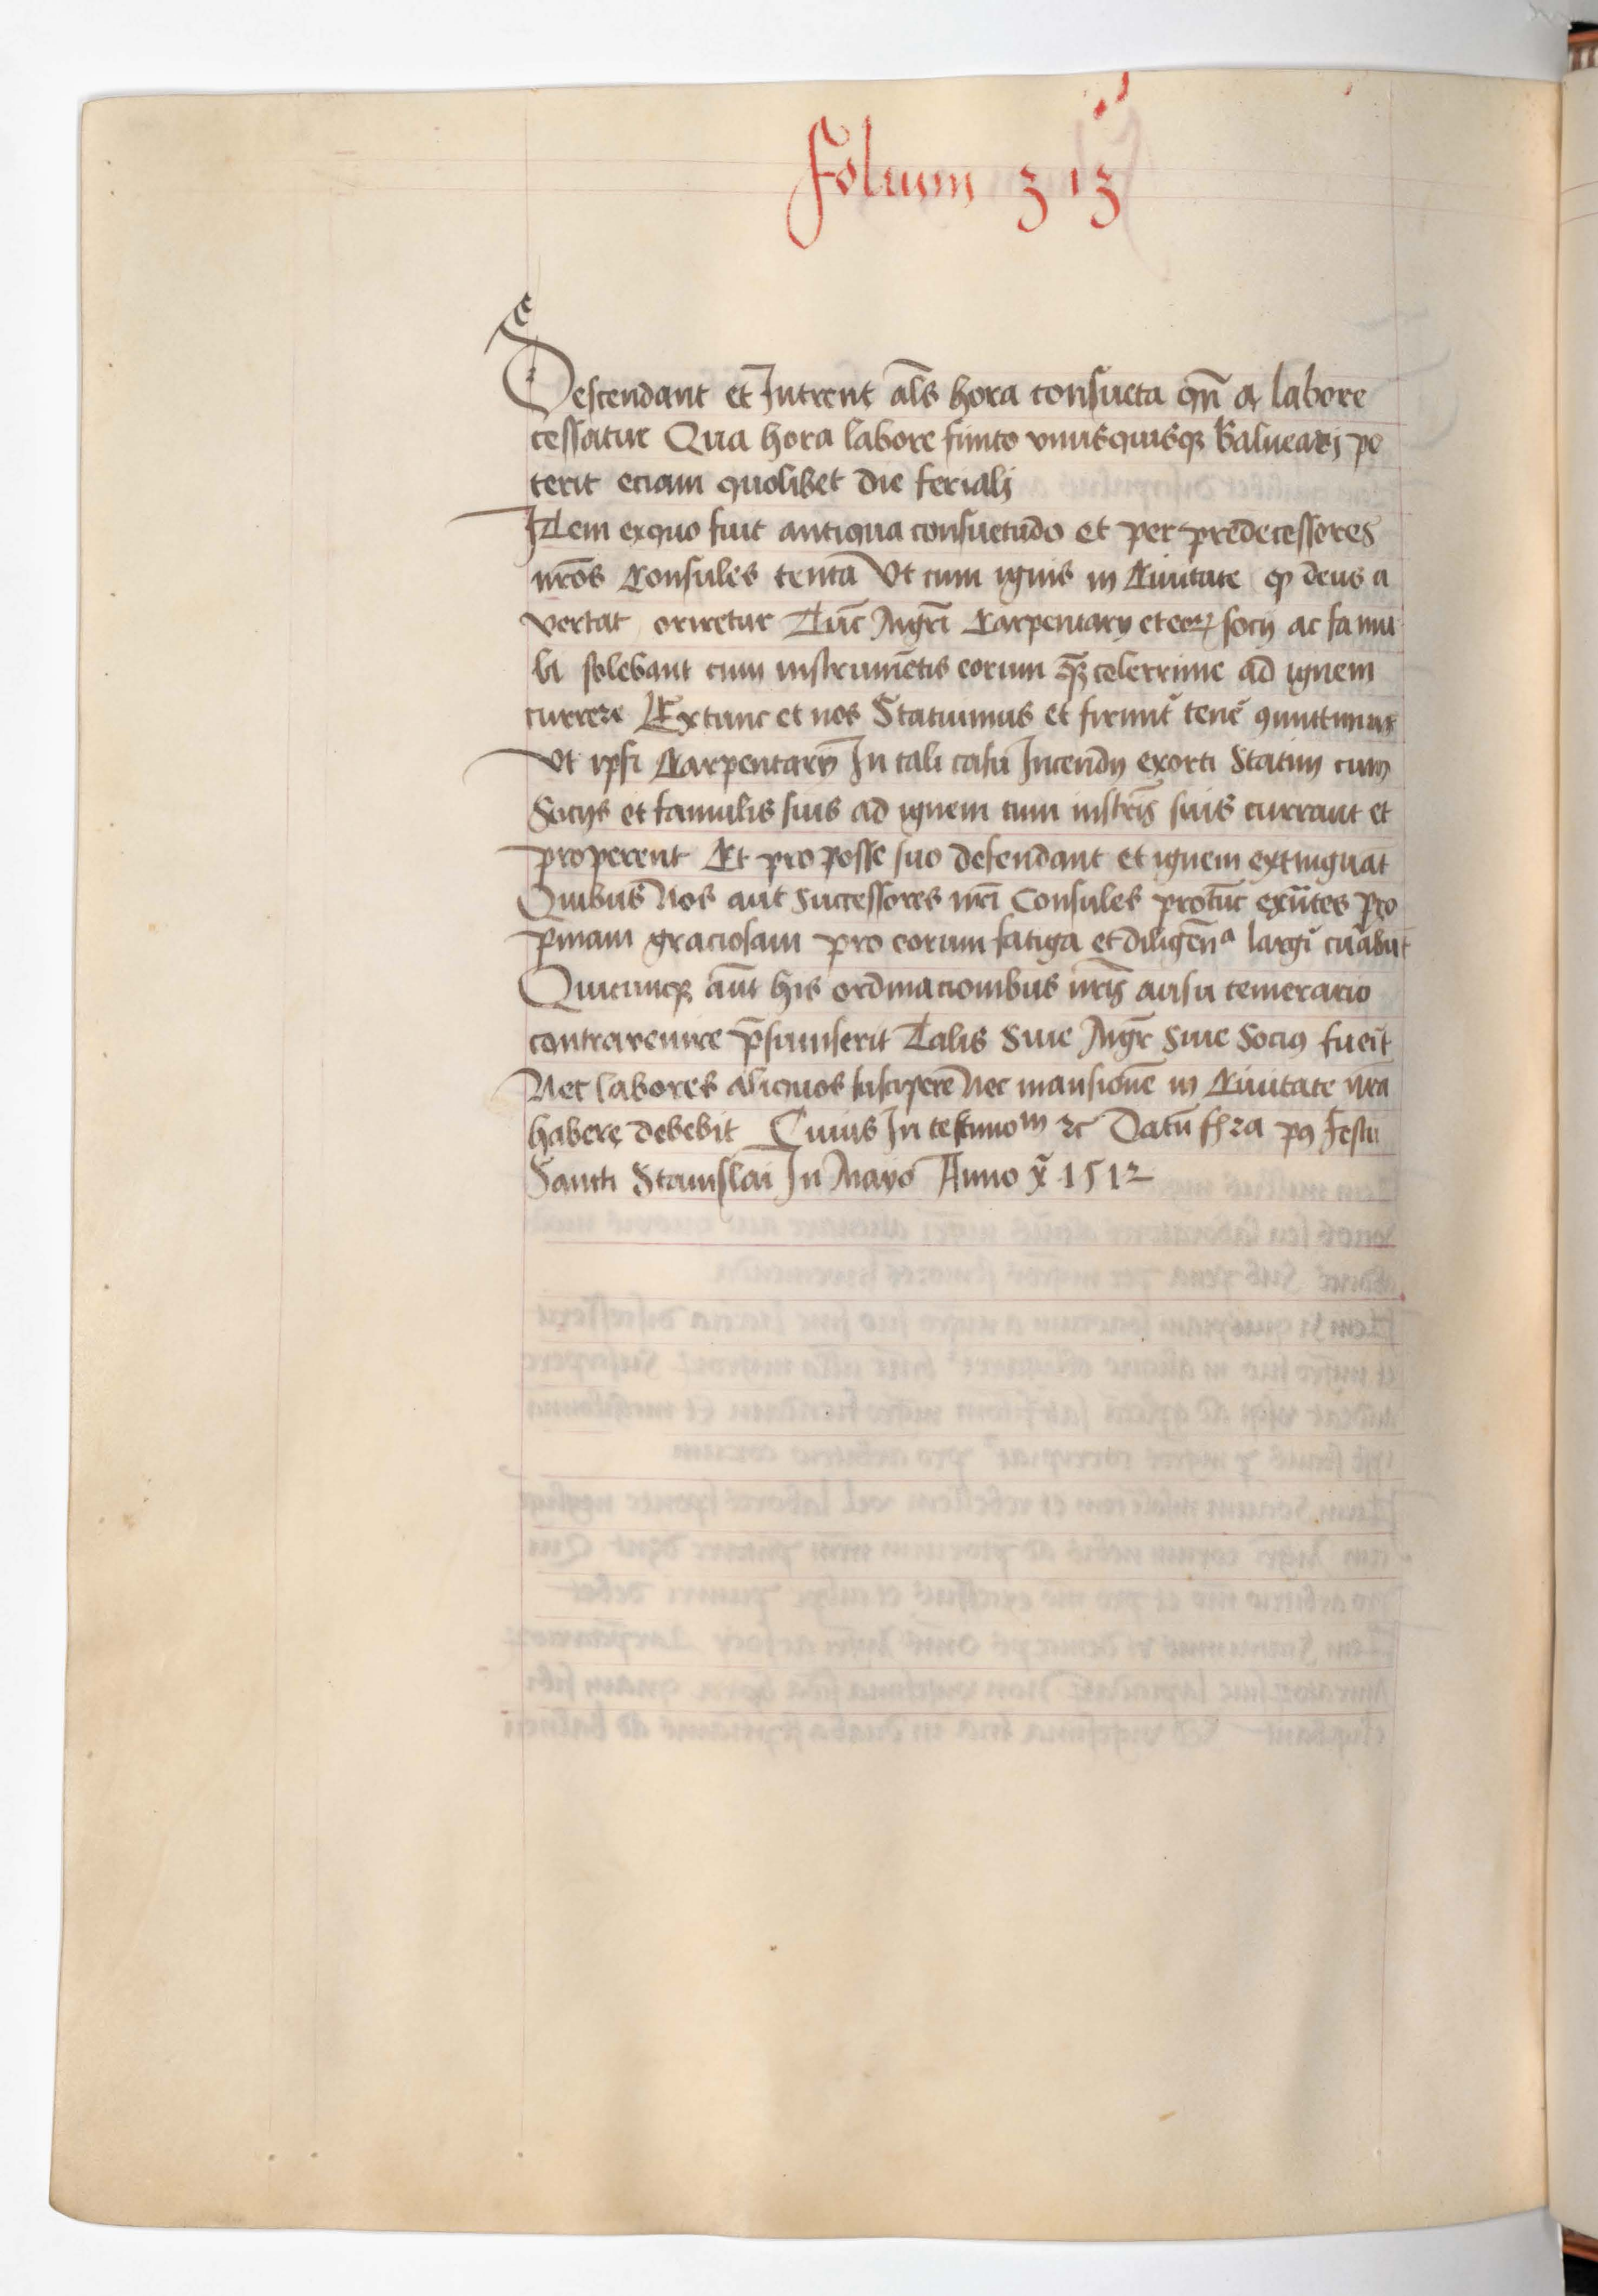 Folium 313
Descendant et Intrent als hora consueta qn̄ a labore
cessatur Qua hora labore finito vnusquisqꝫ Balnearj po
terit eciam quolibet die ferialj
Item exquo fuit antiqua consuetudo et per predecessores
nr̄os Consules tenta Vt cum ignis in Ciuitate qꝫ deus a
vertat oriretur Tūc Mgr̄i Carpentarij et eoꝝ socij ac famu
li solebant cum instrumētis eorum qꝫ celerrime ad ignem
currere Extunc et nos Statuimus et firmit̄ tenē ꝯmittimus
Vt ipsi Carpentarij In tali casu Incendij exorti Statim cum
Socijs et famulis suis ad ignem cum instr̄is suis currant et
properent Et pro posse suo defendant et ignem extinguāt
Quibus Nos aut Successores nr̄i Consules protūc exn̄tes pro
p̄miam graciosam pro eorum fatiga et diligēnᵃ largi curabūt
Quicunqꝫ aūt his ordinacionibus nr̄is ausu temerario
contrauenire p̄sumserit Talis Siue Mgr̄ Siue Sociꝰ fueīt
Nec labores aliquos suscipere Nec mansionē in Ciuitate nr̄a
habere debebit Cuius In testimoᵐ ꝛc Datū f̄ 2a pꝰ Festū
Sancti Stanislai In Mayo Anno x̄ 1512